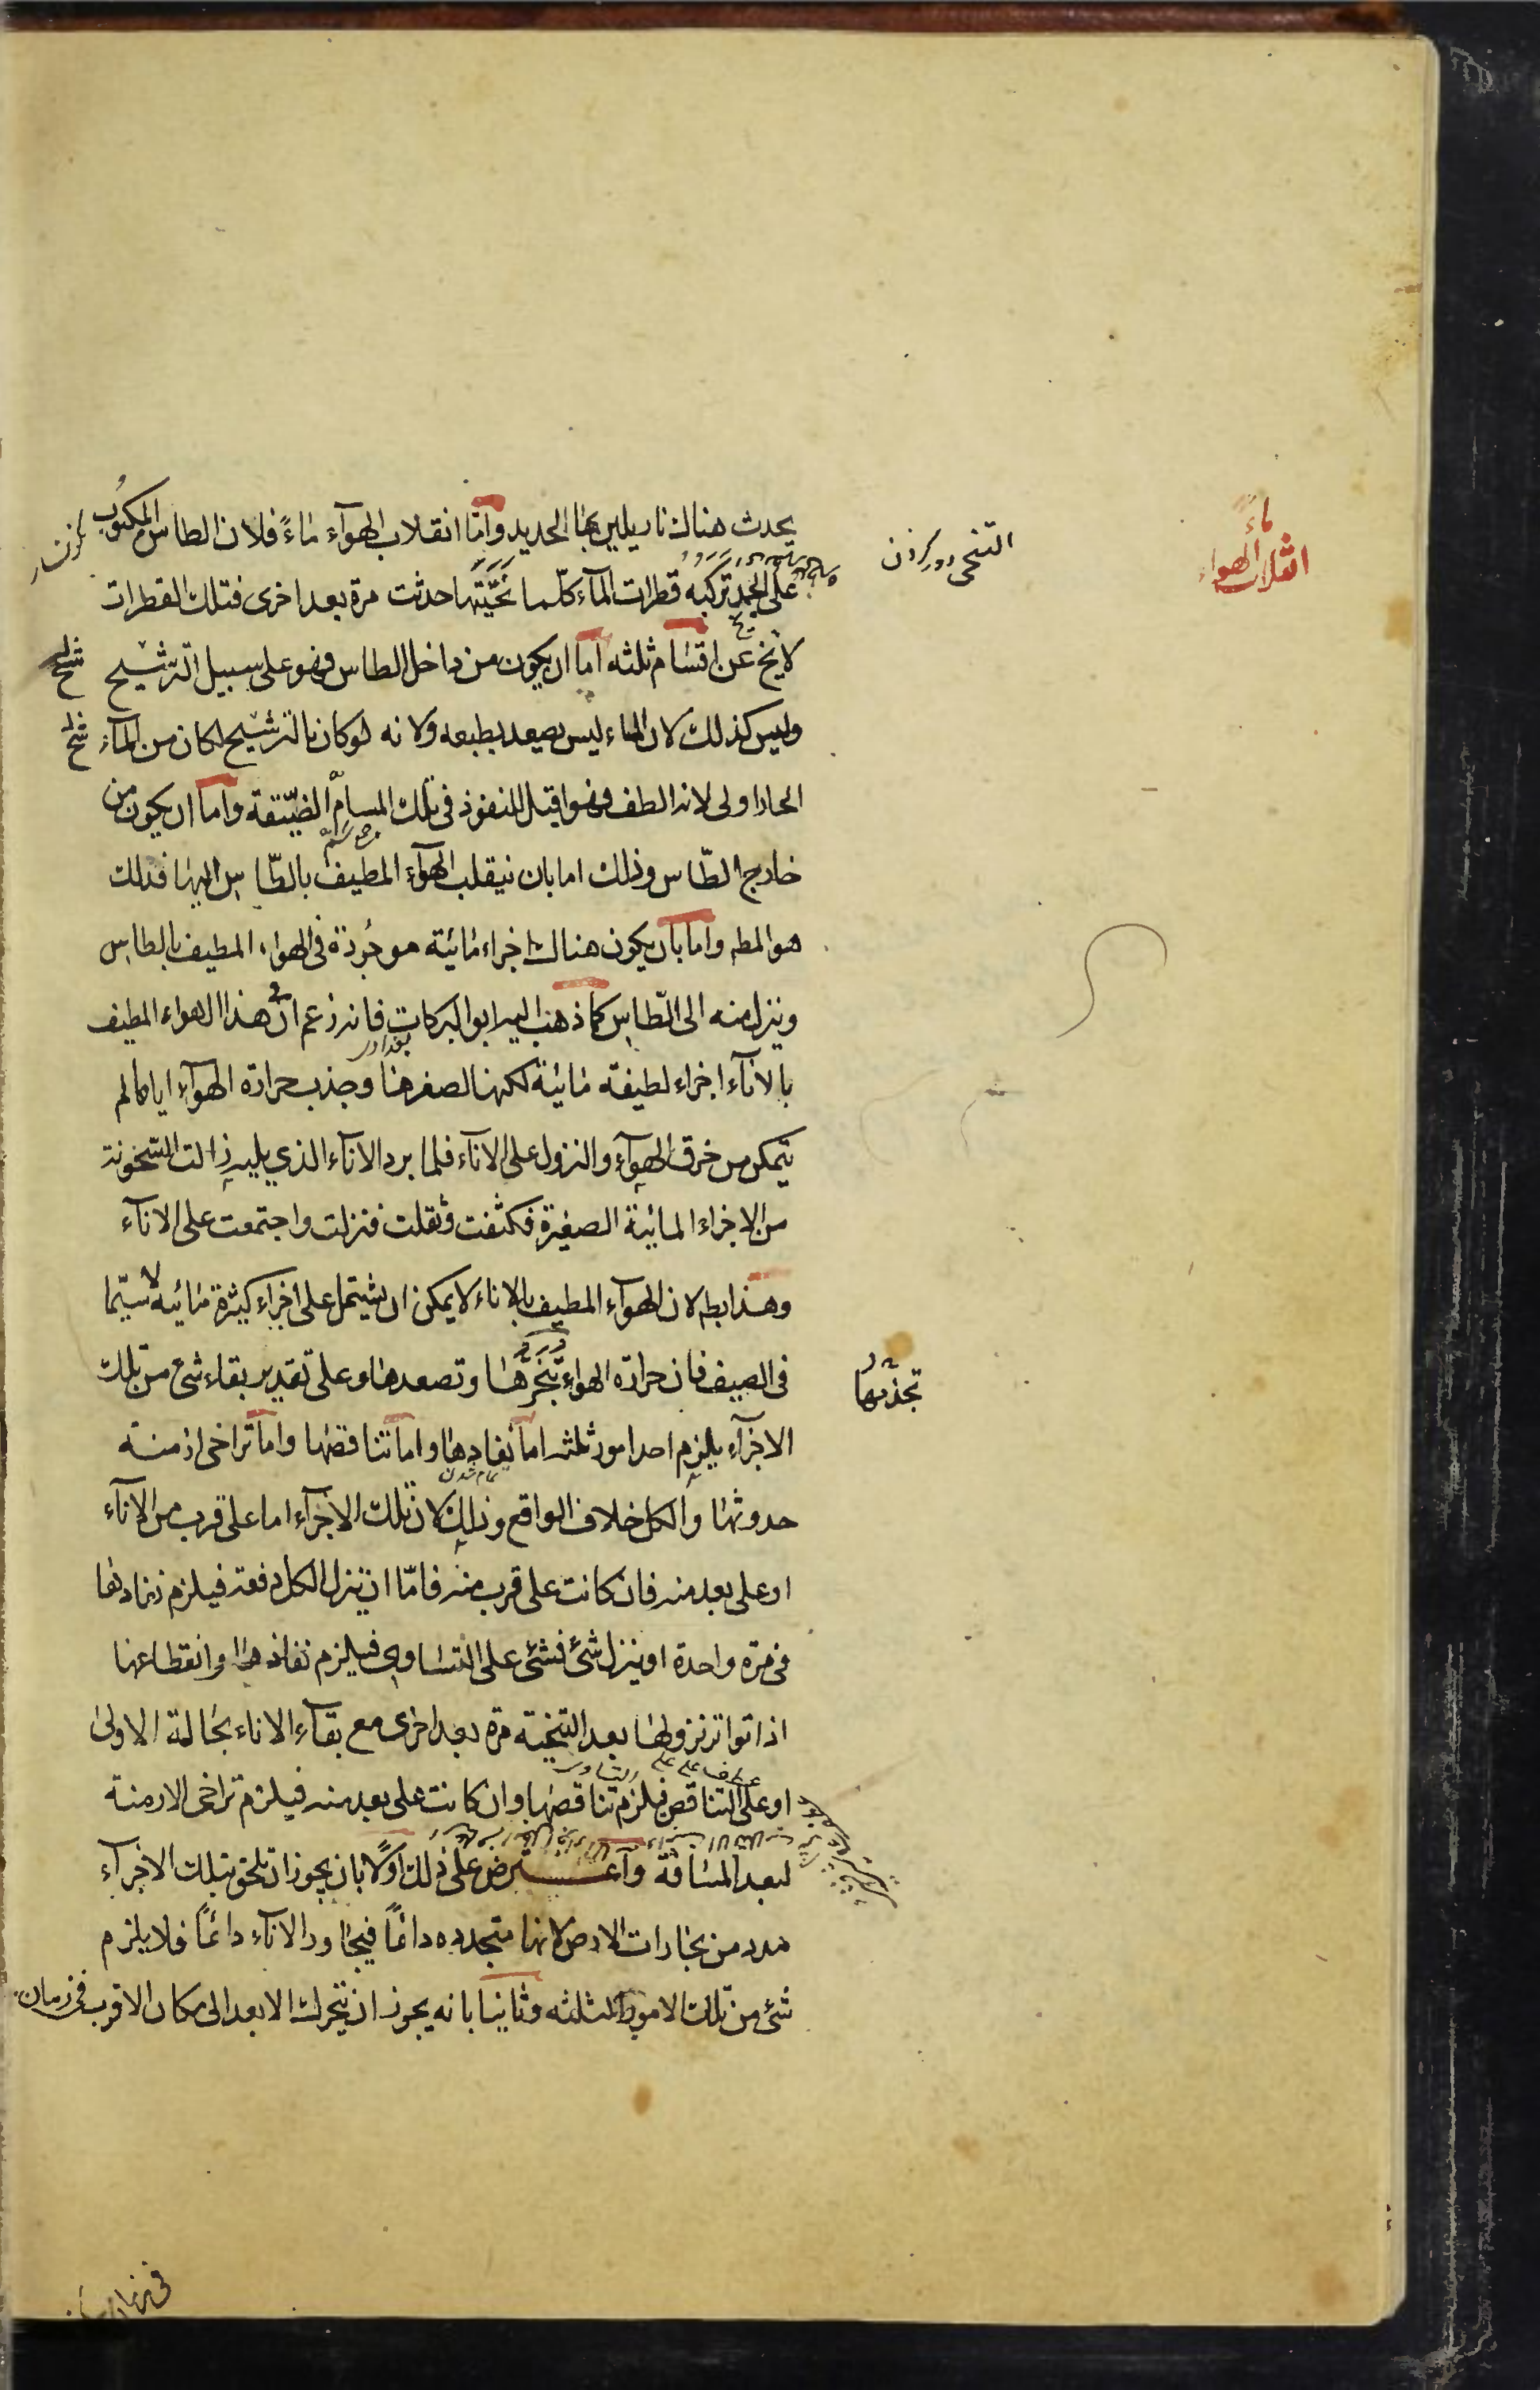 يحدث هناك نار يلين بها الحديد واما انقلاب الهوآء ماءً فلان الطاس المكبوب
على الجمد تركبه قطرات المآء كلّما نحَّيَتها حدثت مرة بعد اخرى فتلك القطرات
لايخ عن اقسام ثلثه اما ان يكون من داخل الطاس وهو على سبيل الترشيح
وليس كذلك لان الماء ليس يصعد بطبعه ولانه لو كان بالترشيح لكان من المآء
الحار اولى لانه الطف وهو اقبل للنفوذ فى تلك المسامّ الضيّقة واما ان يكون من
خارج الطّاس وذلك اما بان ينقلب الهوآء المطيف بالطّاس اليها فذلك
هو المطه واما بان يكون هناك اجزاء مائية موجودة فى الهواء المطيف بالطاس
وينزل منه الى الطّاس كما ذهب اليه ابو البركات فانه زعم ان فى هذا الهواء المطيف
بالانآء اجزاء لطيفة مائية لكنها لصغرها وجذب حرارة الهوآء اياها لم
يتمكن من خرق الهوآء والنزول على الانآء فلما برد الاناء الذي يليه زالت السّخونة
من الاجزاء المائية الصغيرة فكثفت وثقلت فنزلت واجتمعت على الانآء
وهذا بطه لان الهوآء المطيف بالاناء لا يمكن ان يشتمل على اجزاء كثيرة مائية لاسيّما
فى الصيف فان حرارة الهواء تبخرها وتصعدها وعلى تقدير بقاء شئ من تلك
الاجزآء يلزم احد امور ثلثه اما نفادها واما تناقصها واما تراخى ازمنة
حدوثها والكل خلاف الواقع وذلك لان تلك الاجزآء اما على قرب من الانآء
او على بعد منه فان كانت على قرب منه فامّا ان ينزل الكل دفعة فيلزم نفادها
فى مرة واحدة او ينزل شئ فشئ على التساوى فيلزم نفادها وانقطاعها
اذا تواتر نزولها بعد التنحية مرة بعد اخرى مع بقآء الاناء بحالة الاولى
او على التناقص فيلزم تناقصها وان كانت على بعد منه فيلزم تراخى الازمنة
لبعد المسافة وآعترض على ذلك اولًا بان يجوز ان تلحق بتلك الاجزآء
مدد من بخارات الارض لانها متجددة دائمًا فيجاور الانآء دائمًا فلا يلزم
شئ من تلك الامور الثلثه وثانيا بانه يجوز ان يتحرك الابعد الى مكان الاقرب فى زمان
التنحى دور كردن
انقلاب الهواء
ماءً
تجذبها